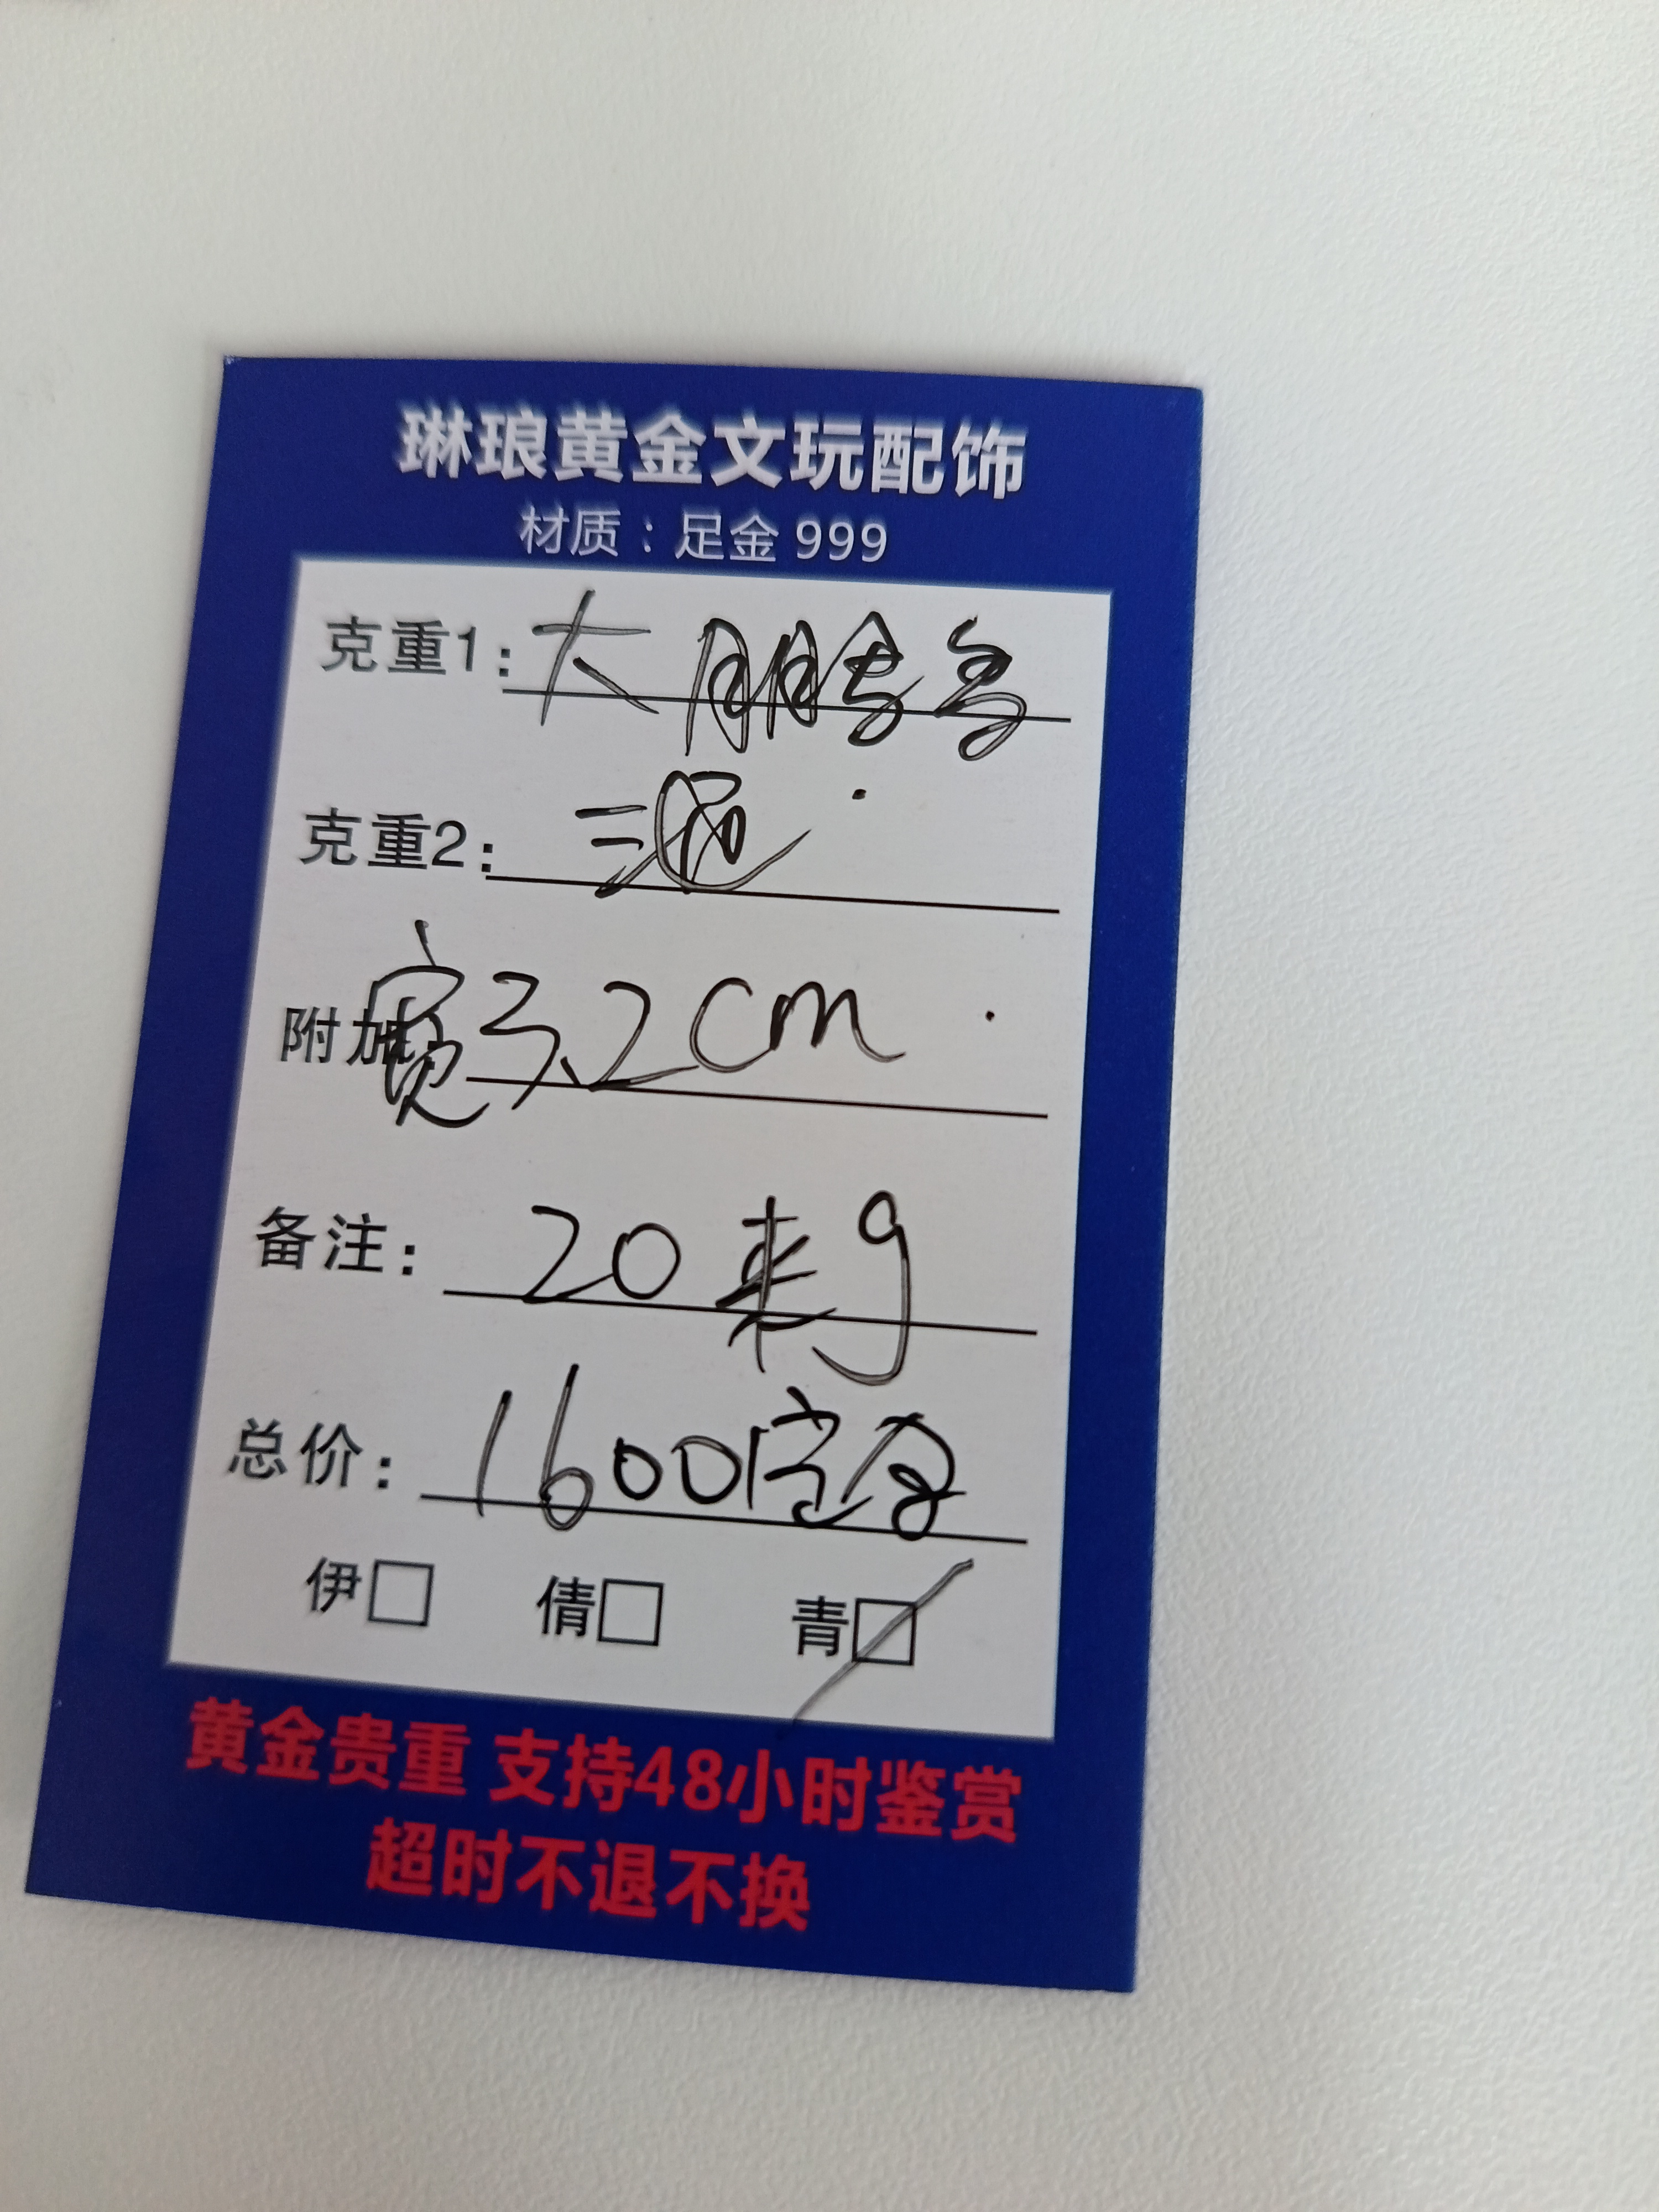 琳琅黄金文玩配饰
材质：足金 999
克重1：大鹏鸟
克重2：
附加：宽3.2cm
备注：20来g
总价：1600
伊□ 倩□ 青□
黄金贵重 支持48小时鉴赏
超时不退不换